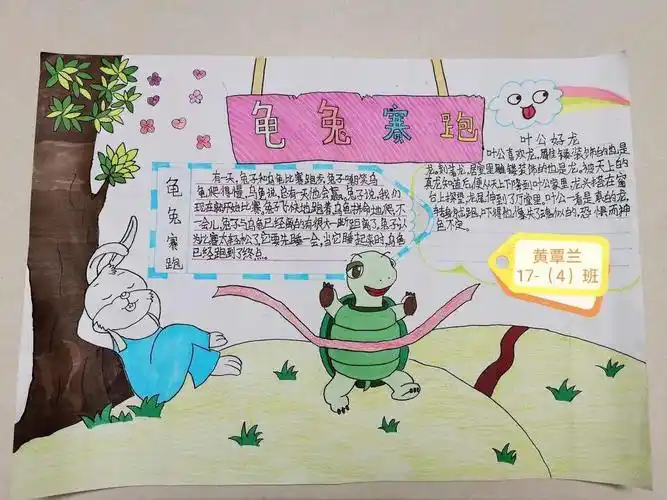 龟兔赛跑
龟兔赛跑
有一天,兔子和乌龟比赛跑步,兔子嘲笑乌
龟爬得慢,乌龟说,总有一天他会赢。兔子说,我们
现在就开始比赛。兔子飞快地跑着,乌龟拼命地爬,不
一会儿,兔子与乌龟已经离的有很大一段距离了。兔子认
为比赛太轻松了,它要先睡一会,当它醒起来时,乌龟
已经跑到了终点。
叶公好龙
叶公喜欢龙,
龙,居室里雕镂装饰的也是龙,被天上的
真龙知道后,便从天上下降到叶公家里,龙头搭在窗
台上探望,龙尾伸到了厅堂里,叶公一看是真的龙,
转身就跑,吓得他像失了魂似的,恐惧而神
色不定。
黄覃兰
17-(4)班